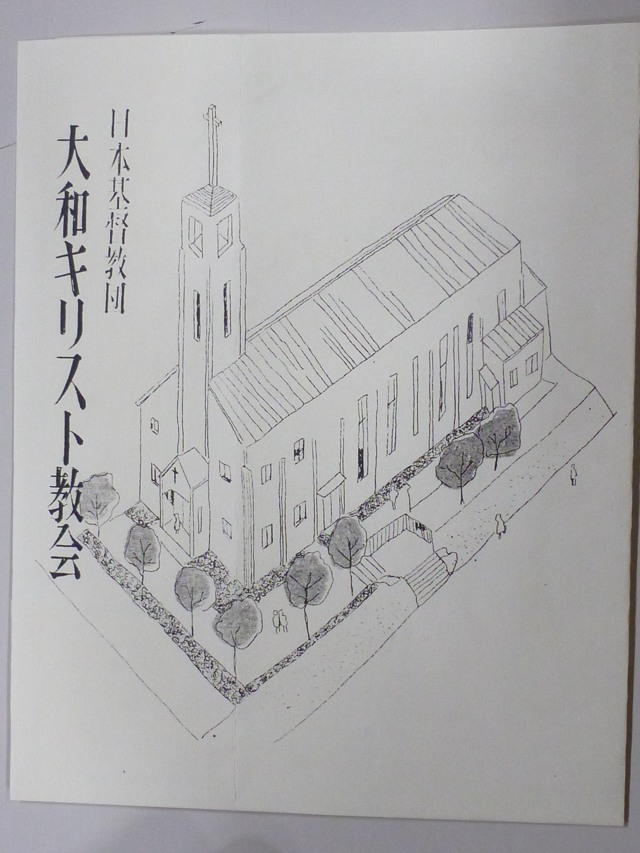 日本基督教団
大和キリスト教会